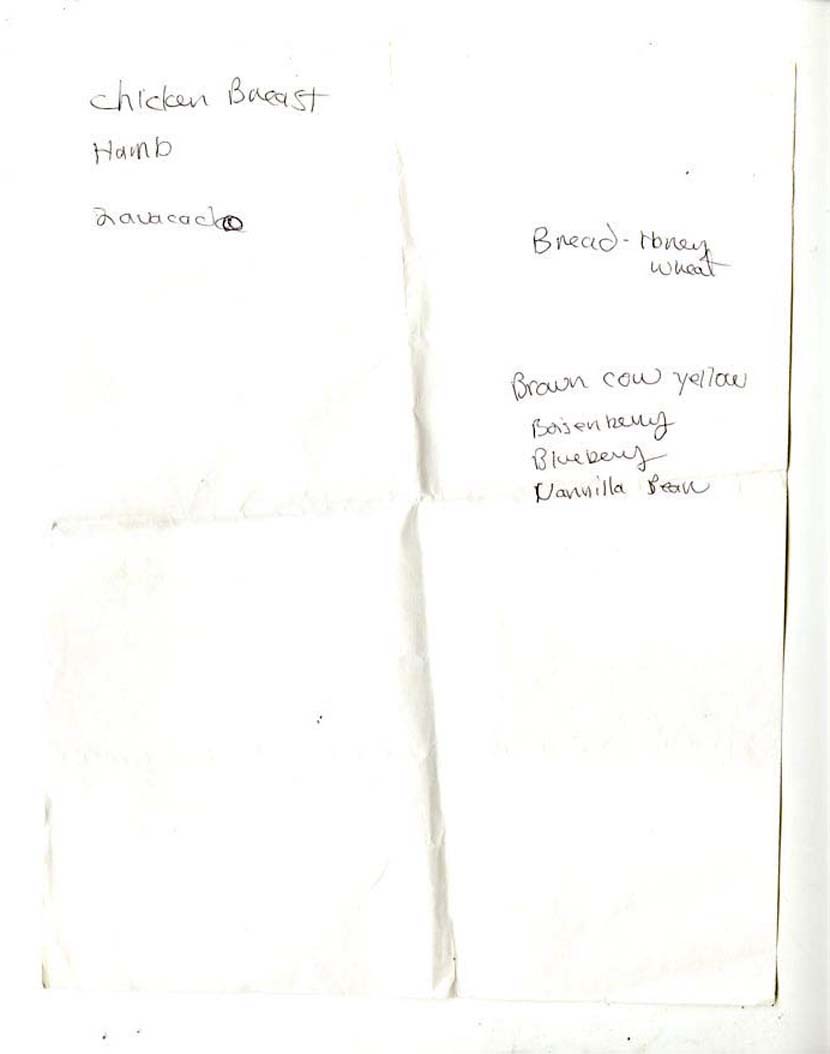 chicken Breast
Hamb
2 avacado
Bread - Honey
wheat
Brown cow yellow
Boisenberry
Blueberry
Vannilla Bean